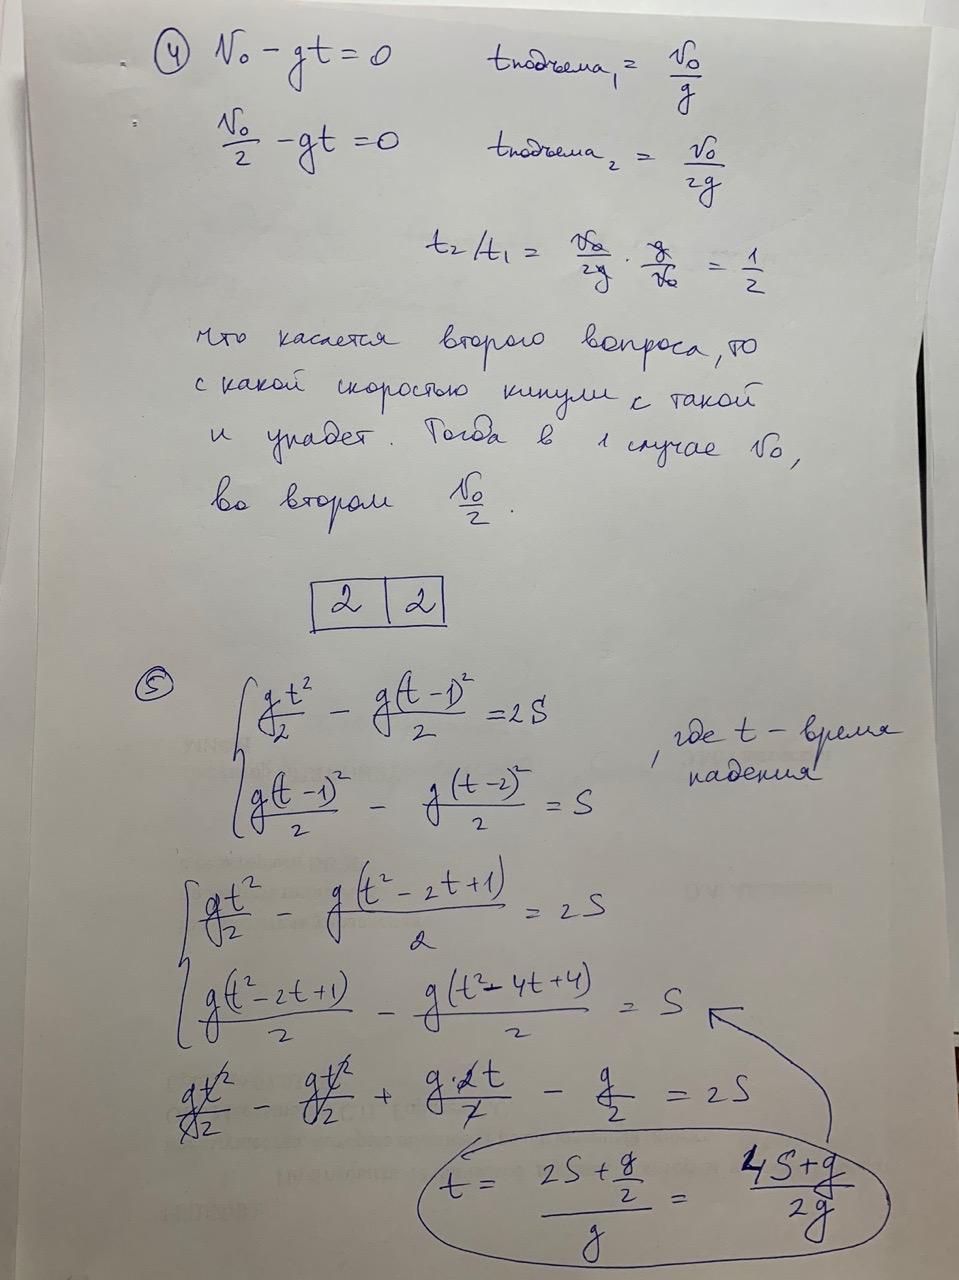 ④ V₀ − gt = 0 tподъема₁ = V₀/g
V₀/2 − gt = 0 tподъема₂ = V₀/2g
t₂/t₁ = V₀/2g · g/V₀ = 1/2
Что касается второго вопроса, то
с какой скоростью кинули с такой
и упадет. Тогда в 1 случае V₀,
во втором V₀/2.
2 | 2
⑤ { gt²/2 − g(t−1)²/2 = 2S
g(t−1)²/2 − g(t−2)²/2 = S , где t − время
падения
{ gt²/2 − g(t²−2t+1)/2 = 2S
g(t²−2t+1)/2 − g(t²−4t+4)/2 = S
gt²/2 − gt²/2 + g·2t/2 − g/2 = 2S
t = (2S + g/2)/g = (4S+g)/2g